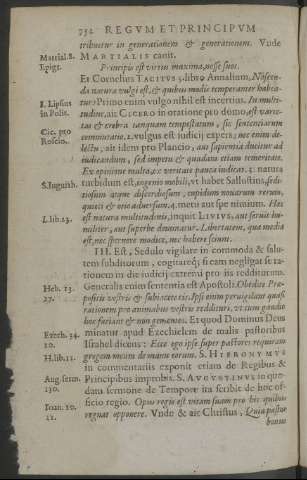 752 REGVM ET PRINCIPVM
tribuetur in generationem & generationem. Vnde
Martial. 8. MARTIALIS canit.
Epigr. Principis est virtus maxima, nosse suos.
Et Cornelius TACITVS 5. libro Annalium, Noscen-
da natura vulgi est, & quibus modis temperanter habea-
I. Lipsius tur: Primo enim vulgo nihil est incertius. In mul-
in Polit. titudine, ait CICERO in oratione pro domo, est varie-
tas & crebra tanquam tempestatum, sic sententiarum
Cic. pro commutatio. 2. vulgus est iudicij expers; nec enim de-
Roscio. lectu, ait idem pro Plancio, aut sapientia ducitur ad
iudicandum, sed impetu & quadam etiam temeritate.
Ex opinione multa, ex veritate pauca indicat. 3. natura
S. Iugurth. turbidum est, ingenio mobili, vt habet Sallustius, sedi-
tiosum atque discordiosum, cupidum nouarum rerum,
quieti & otio aduersum. 4. metu aut spe nimium. Hæc
L. lib. 23. est natura multitudinis, inquit LIVIVS, aut seruit hu-
militer, aut superbe dominatur. Libertatem, quæ media
est, nec spernere modice, nec habere sciunt.
III. Est, Sedulo vigilare in commoda & salu-
tem subditorum, cogitareq; si eam negligat se ra-
tionem in die iudicij extremi pro iis redditurum.
Heb. 13. Generalis enim sententia est Apostoli. Obedite Præ-
27. positis vestris & subiacete eis. Ipsi enim peruigilant quasi
rationem pro animabus vestris reddituri, vt cum gaudio
hoc faciant & non gementes. Et quod Dominus Deus
Ezech. 34. minatur apud Ezechielem de malis pastoribus
10. Israhel dicens: Ecce ego ipse super pastores requiram
H. lib. 11. gregem meum de manu eorum. S. HIERONYMVS
in commentariis exponit etiam de Regibus &
Aug. serm. Principibus improbis. S. AVGVSTINVS in quo-
130. dam sermone de Tempore ita scribit de hoc of-
ficio regio. Opus regis est vitam suam pro his quibus
Ioan. 10. regnat opponere. Vnde & ait Christus, Quia pastor
11.
bonus